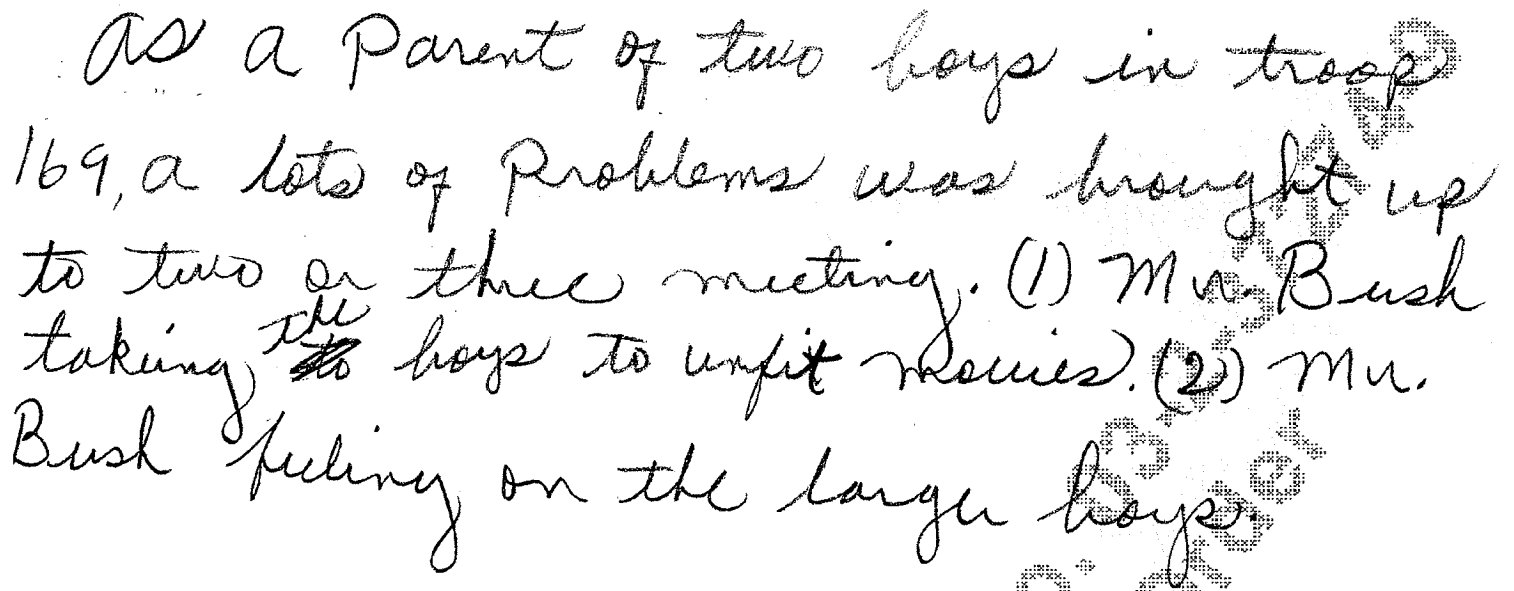 As a Parent of two boys in troop
169, a lots of Problems was brought up
to two or three meeting. (1) Mr. Bush
taking the boys to unfit movies. (2) Mr.
Bush feeling on the larger boys.